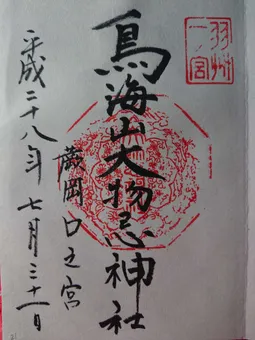 羽州
一ノ宮
鳥海山大物忌神社
蕨岡口之宮
平成二十八年七月三十一日